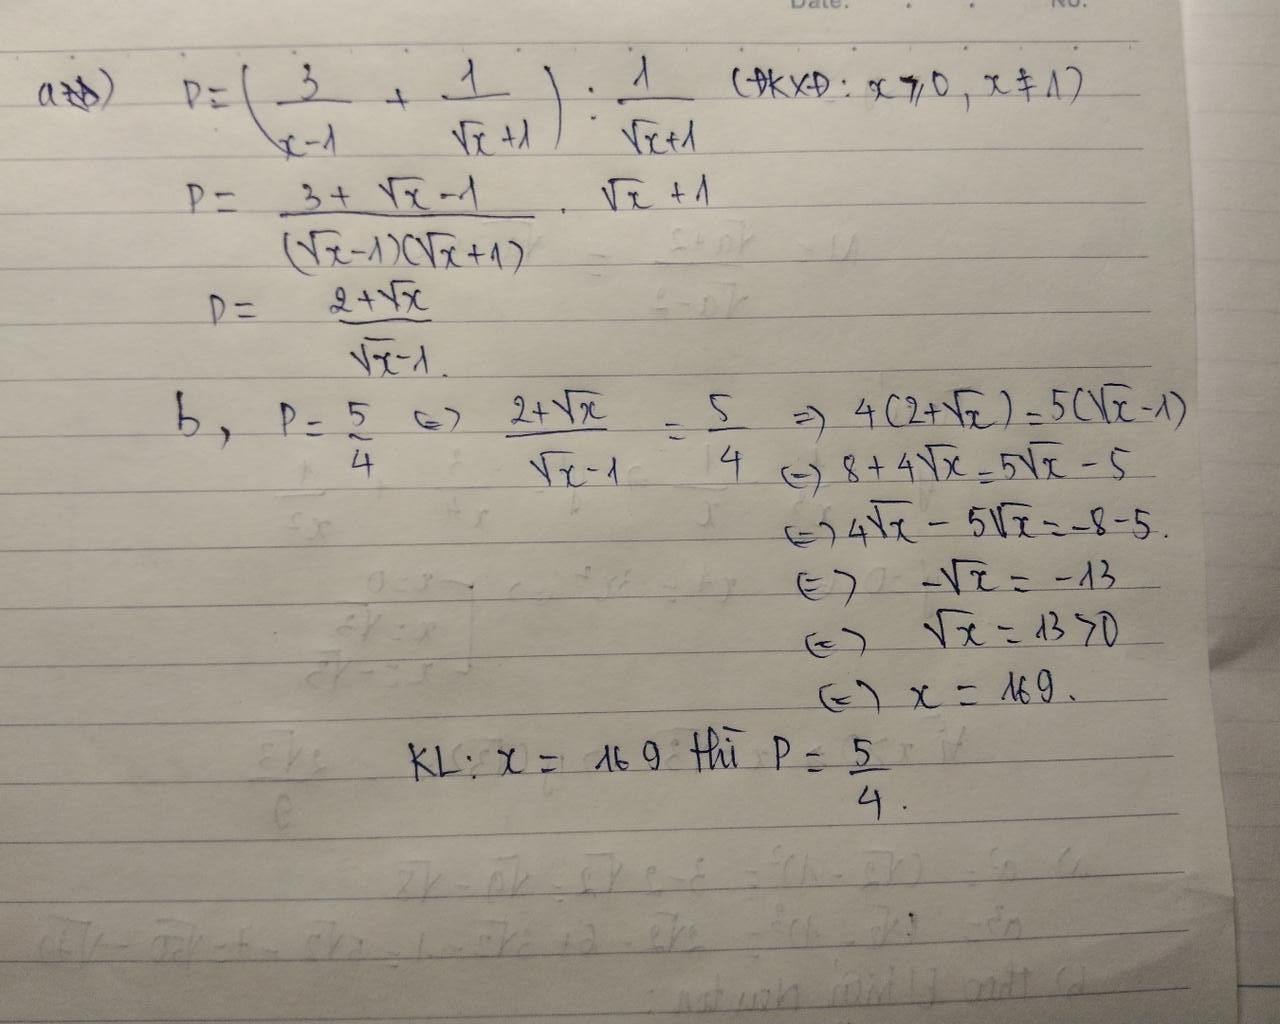 Date: No:
a) P = ( 3/(x-1) + 1/(√x+1) ) : 1/(√x+1) (ĐKXĐ: x ⩾ 0, x ≠ 1)
P = (3+√x-1)/((√x-1)(√x+1)) . √x+1
P = (2+√x)/(√x-1).
b, P = 5/4 (=) (2+√x)/(√x-1) = 5/4 =) 4(2+√x) = 5(√x-1)
(=) 8+4√x = 5√x - 5
(=) 4√x - 5√x = -8-5.
(=) -√x = -13
(=) √x = 13 > 0
(=) x = 169.
KL: x = 169 thì P = 5/4.